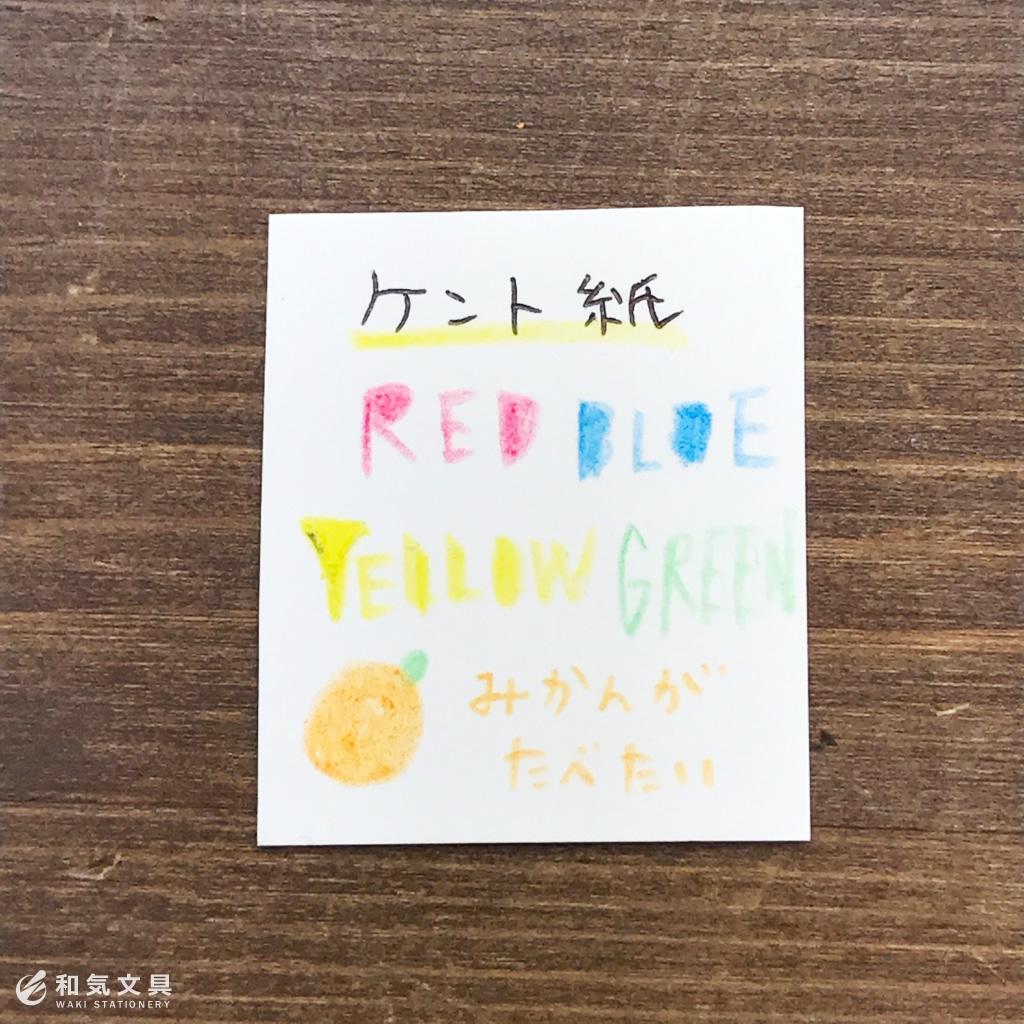 ケント紙
RED BLUE
YELLOW GREEN
みかんが
たべたい
和気文具
WAKI STATIONERY